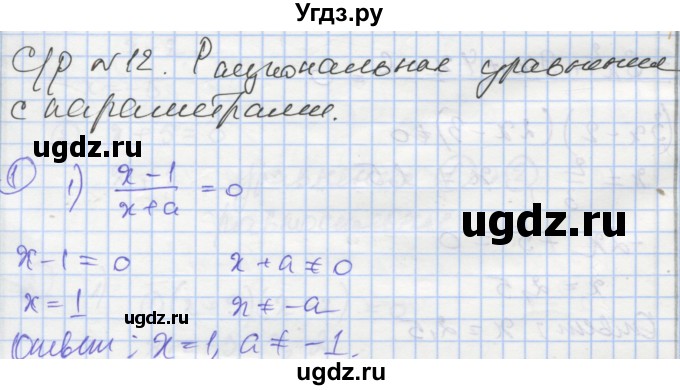 Угдз.ру
С/р №12. Рациональные уравнения
с параметрами.
ugdz.ru
ugdz.ru
1 1) (x-1)/(x+a) = 0
ugdz.ru
x-1=0 x+a≠0
x=1 x≠-a
ugdz.ru
Ответ: x=1, a≠-1.
ugdz.ru
ugdz.ru